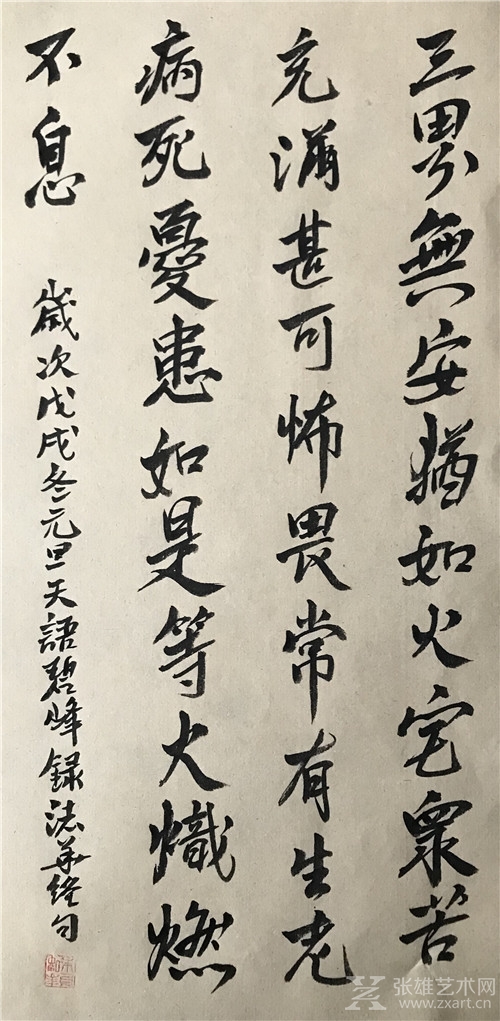 三界無安猶如火宅眾苦
充滿甚可怖畏常有生老
病死憂患如是等火熾燃
不息
歲次戊戌冬元旦天語碧峰錄法華經句
张雄艺术网
www.zxart.cn